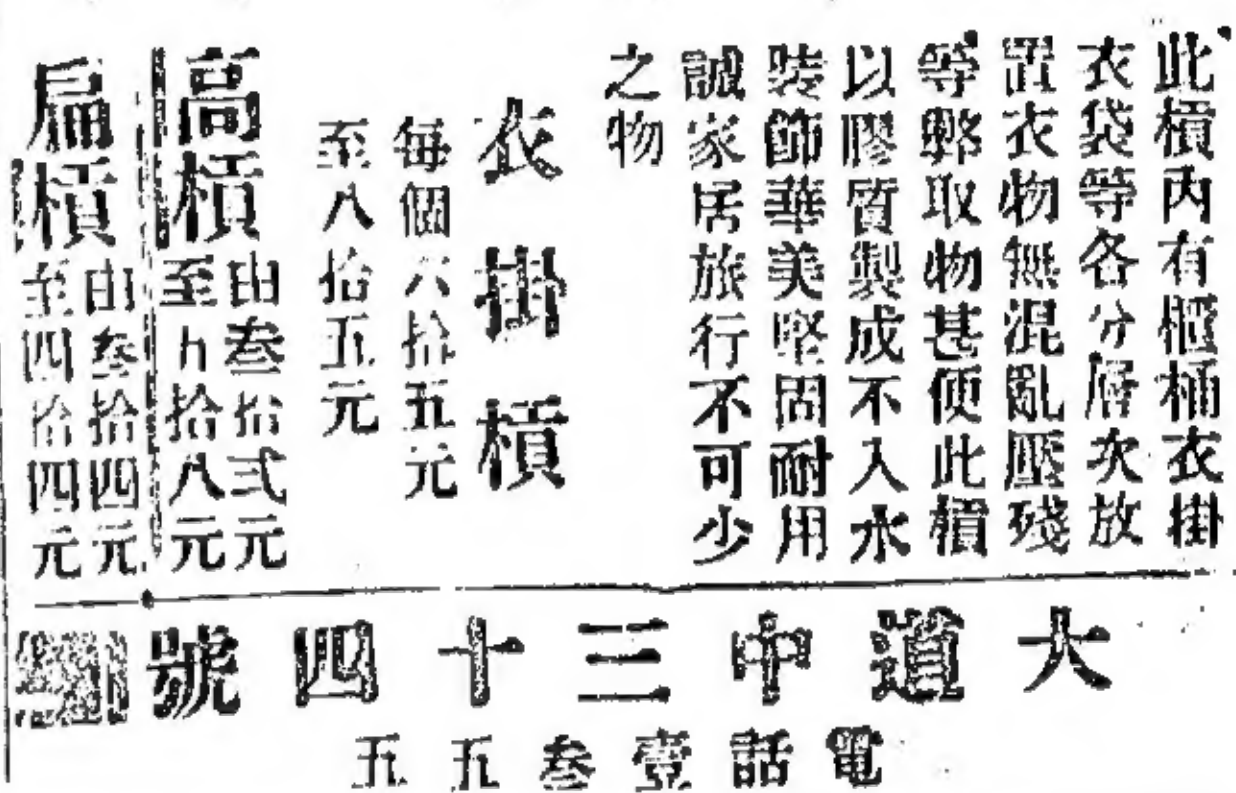 此槓內有櫃桶衣掛
衣袋等各分層次放
置衣物無混亂壓殘
等弊取物甚便此槓
以膠質製成不入水
裝飾華美堅固耐用
誠家居旅行不可少
之物
衣掛槓
每個六拾五元
至八拾五元
高槓
由叁拾弍元
至九拾八元
扁槓
由叁拾四元
至四拾四元
大道中三十四號
電話壹叁五五